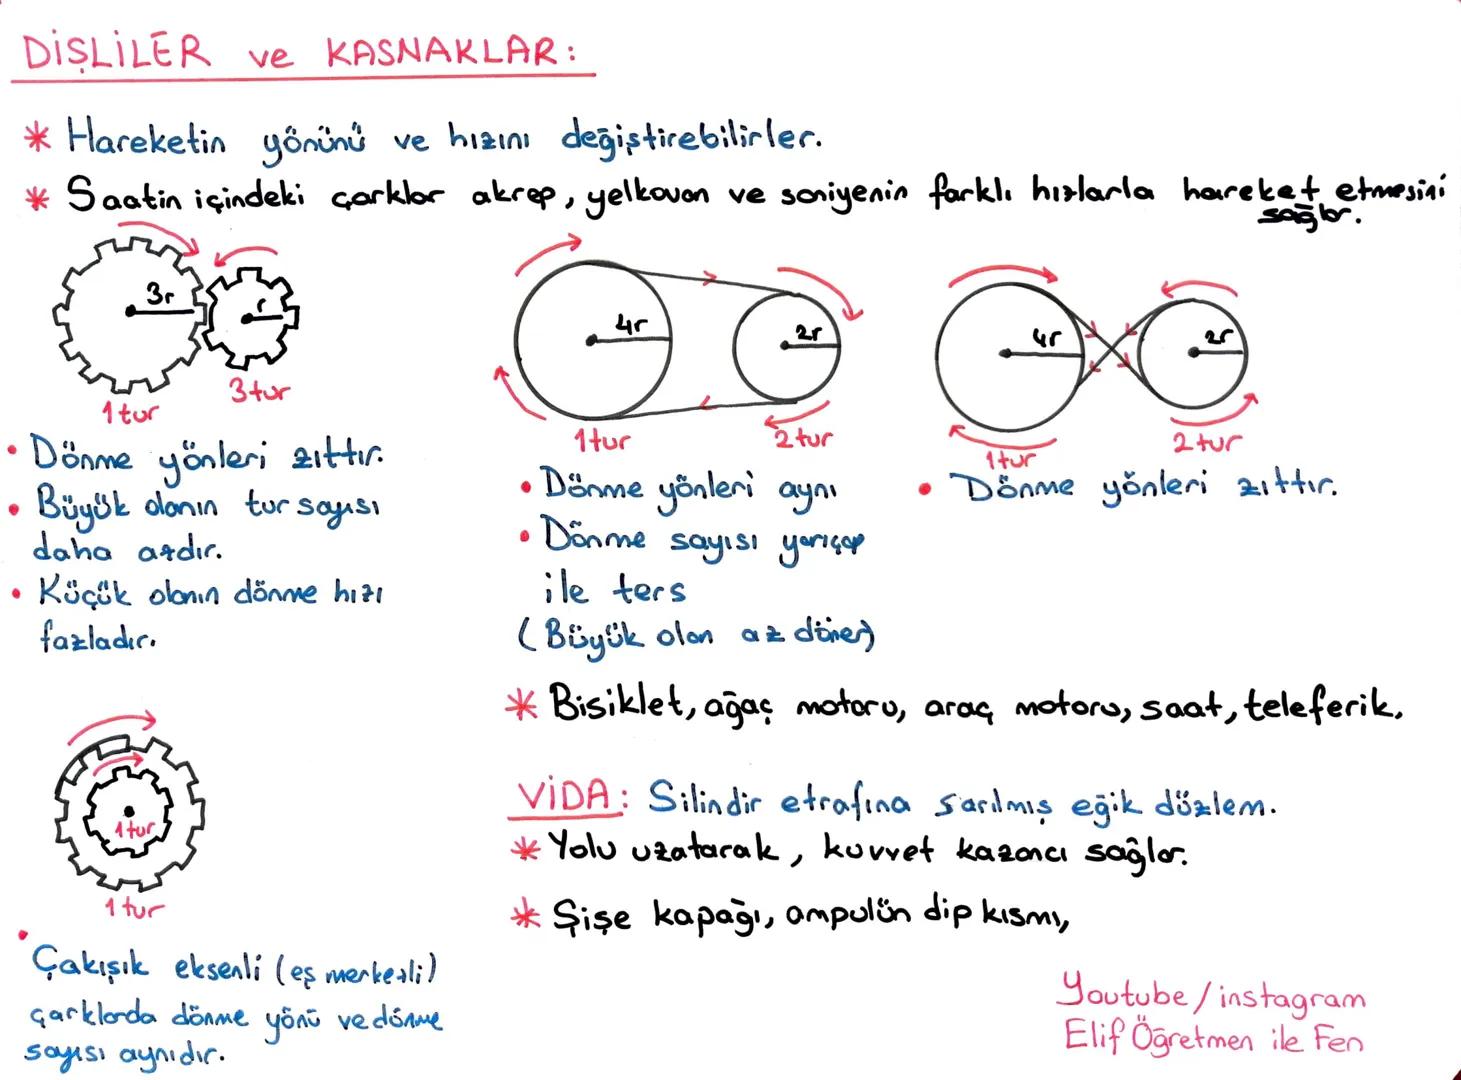 DİŞLİLER ve KASNAKLAR:
* Hareketin yönünü ve hızını değiştirebilirler.
* Saatin içindeki çarklar akrep, yelkovan ve saniyenin farklı hızlarla hareket etmesini
sağlar.
3r
r
1 tur
3 tur
• Dönme yönleri zıttır.
• Büyük olanın tur sayısı
daha azdır.
• Küçük olanın dönme hızı
fazladır.
4r
2r
1 tur
2 tur
• Dönme yönleri aynı
• Dönme sayısı yarıçap
ile ters
(Büyük olan az döner)
4r
2r
1 tur
2 tur
• Dönme yönleri zıttır.
* Bisiklet, ağaç motoru, araç motoru, saat, teleferik.
1 tur
1 tur
• Çakışık eksenli (eş merkezli)
çarklarda dönme yönü ve dönme
sayısı aynıdır.
VİDA: Silindir etrafına sarılmış eğik düzlem.
* Yolu uzatarak, kuvvet kazancı sağlar.
* Şişe kapağı, ampulün dip kısmı,
Youtube/instagram
Elif Öğretmen ile Fen